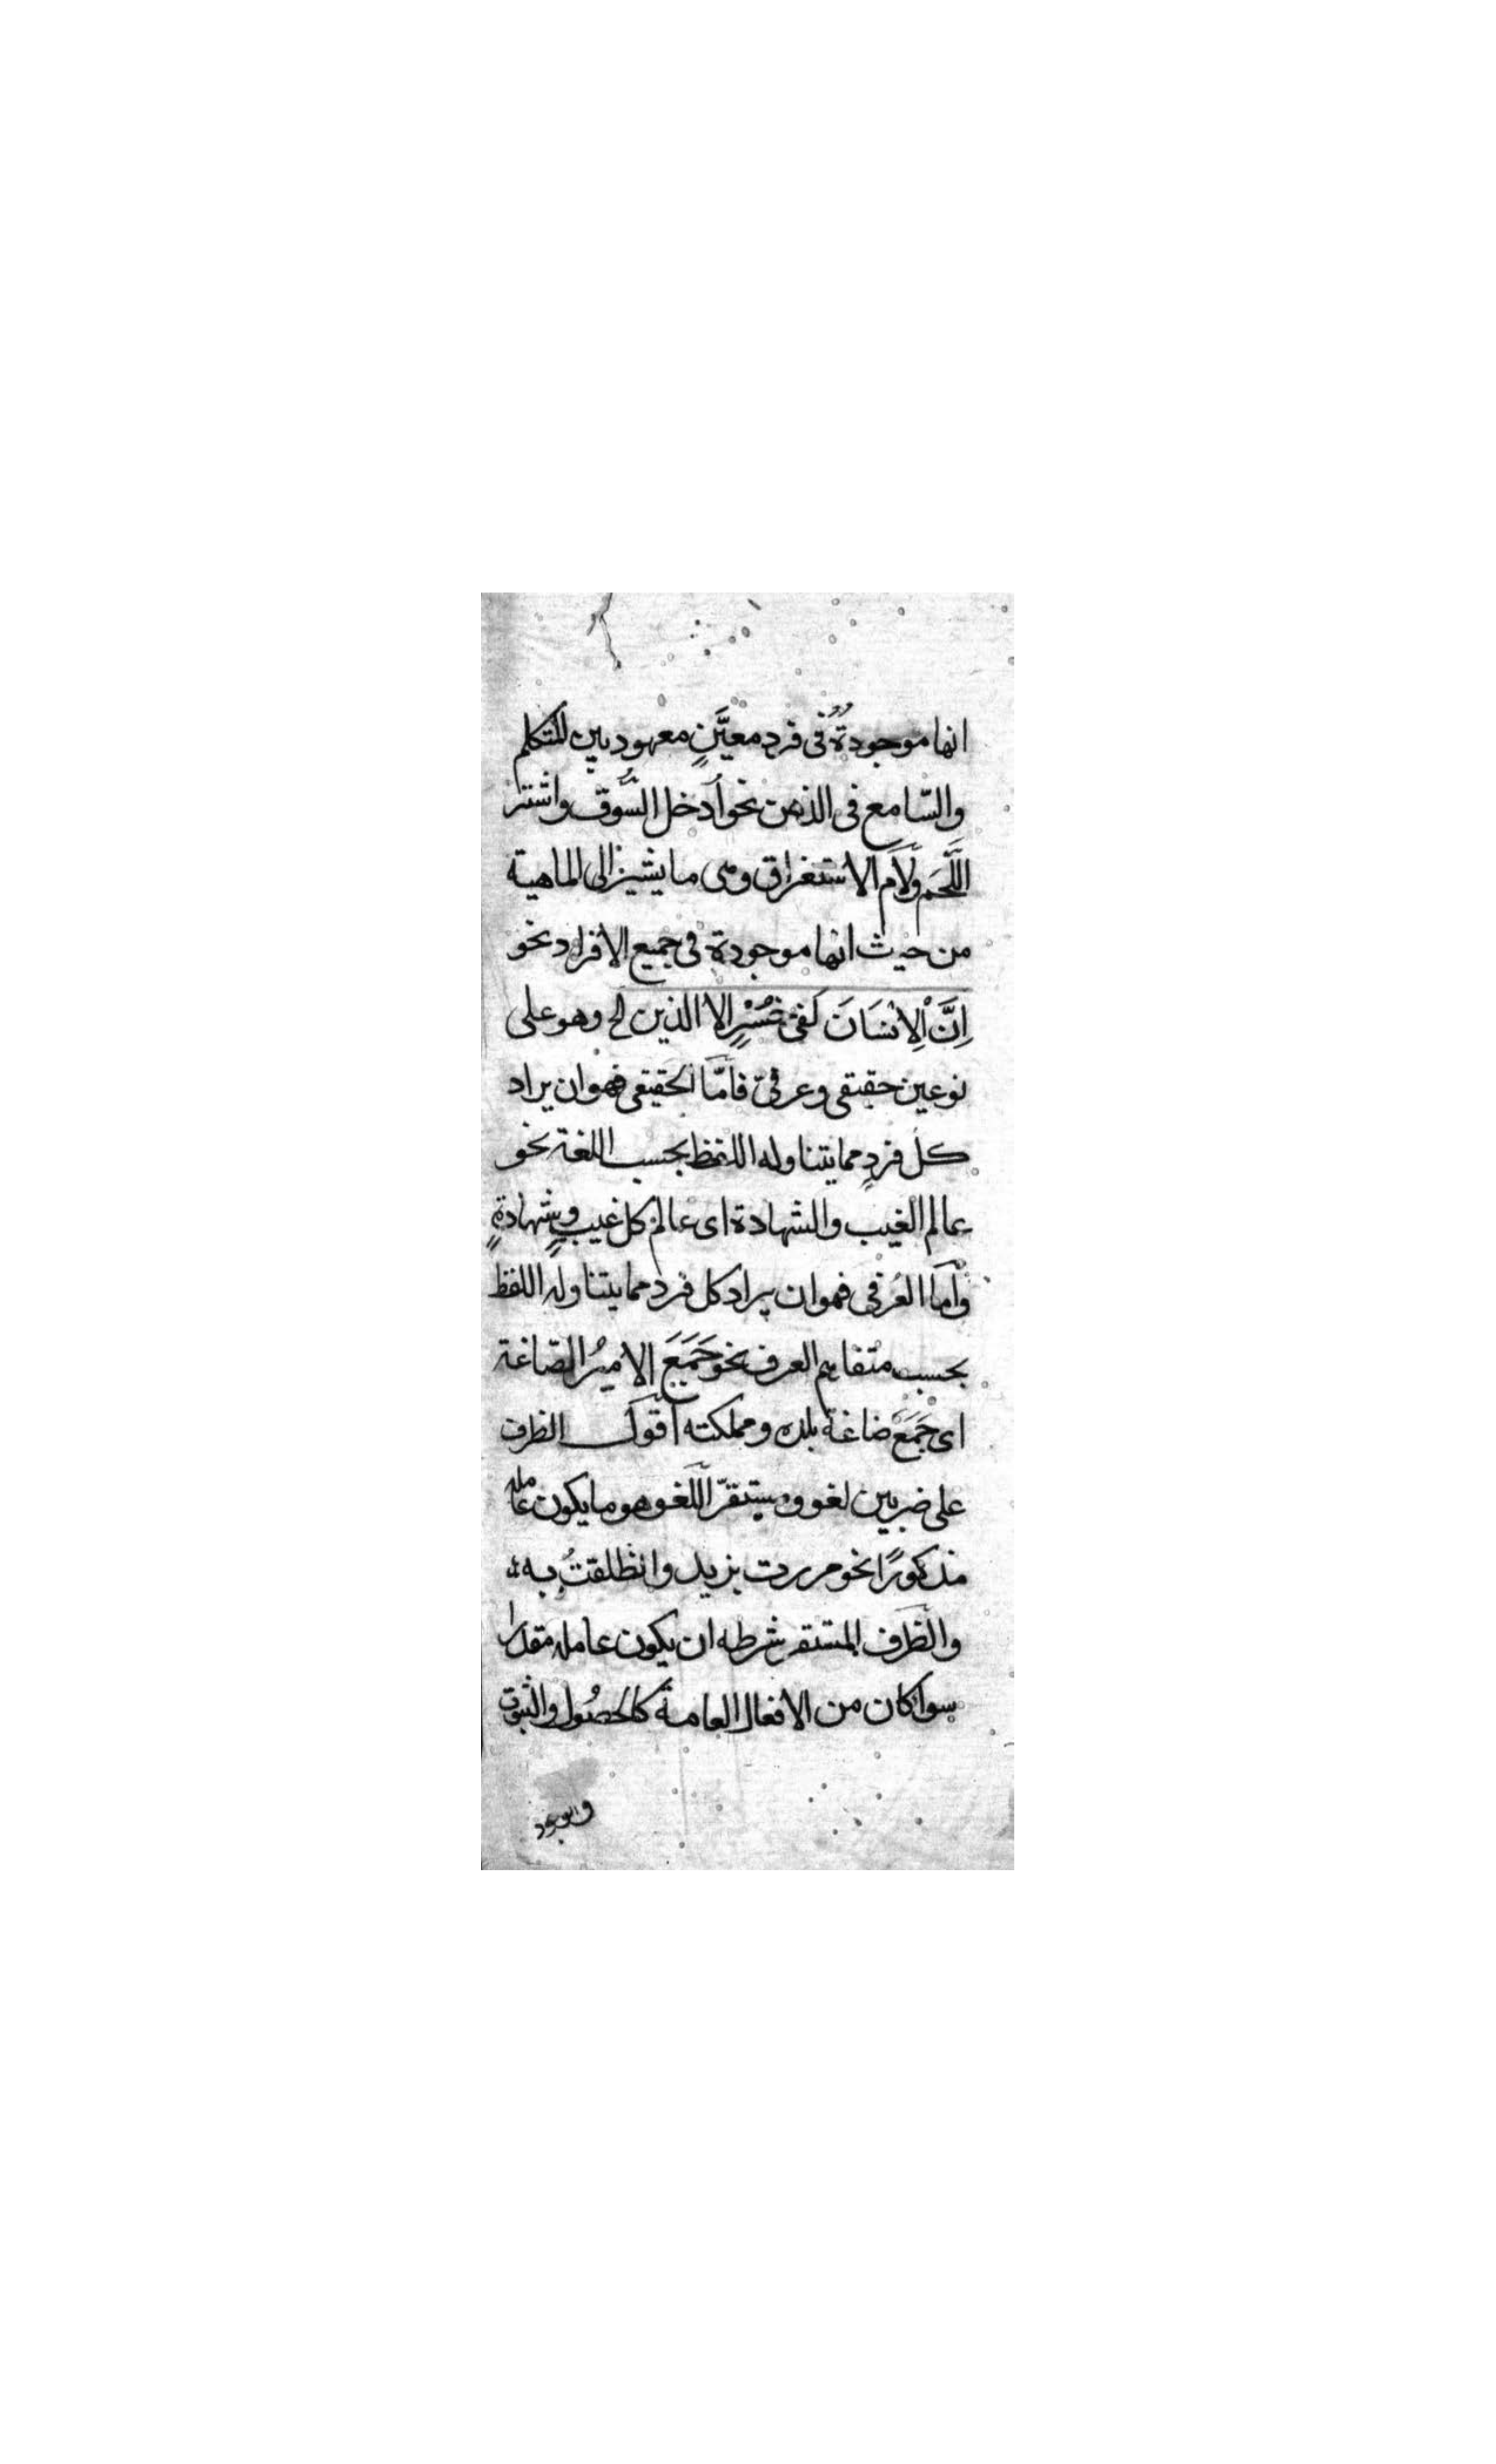 انها موجودةٌ فى فرد معيَّنٍ معهود بين المتكلم
والسّامع فى الذهن نحو اُدخل السُّوق واشتر
اللَّحَم ولاَم الاستغراق وهى ما يشير الى الماهية
من حيث انها موجودة فى جميع الافراد نحو
اِنَّ اْلاِنْسَانَ لَفىْ خُسْرٍ الا الذين الخ وهو على
نوعين حقيقى وعرفىّ فاَمّا الحقيقى فهو ان يراد
كل فردٍ مما يتناوله اللفظ بحسب اللغة نحو
عالم الغيب والشهادة اى عالم كل غيبٍ وشهادةٍ
وأما العُرفى فهو ان يراد كل فرد مما يتناوله اللفظ
بحسب متفاهم العرف نحو جَمَعَ الاميرُ الصّاغة
اى جَمَعَ صاغة بلده ومملكته اقول الظرف
على ضربين لغو ومستقرّ اللّغو هو ما يكون عامله
مذكورًا نحو مررت بزيد وانطلقتُ به
والظرف المستقر شرطه ان يكون عامله مقدرا
سواكان من الافعال العامة كالحصُول والثبوت
والوجود